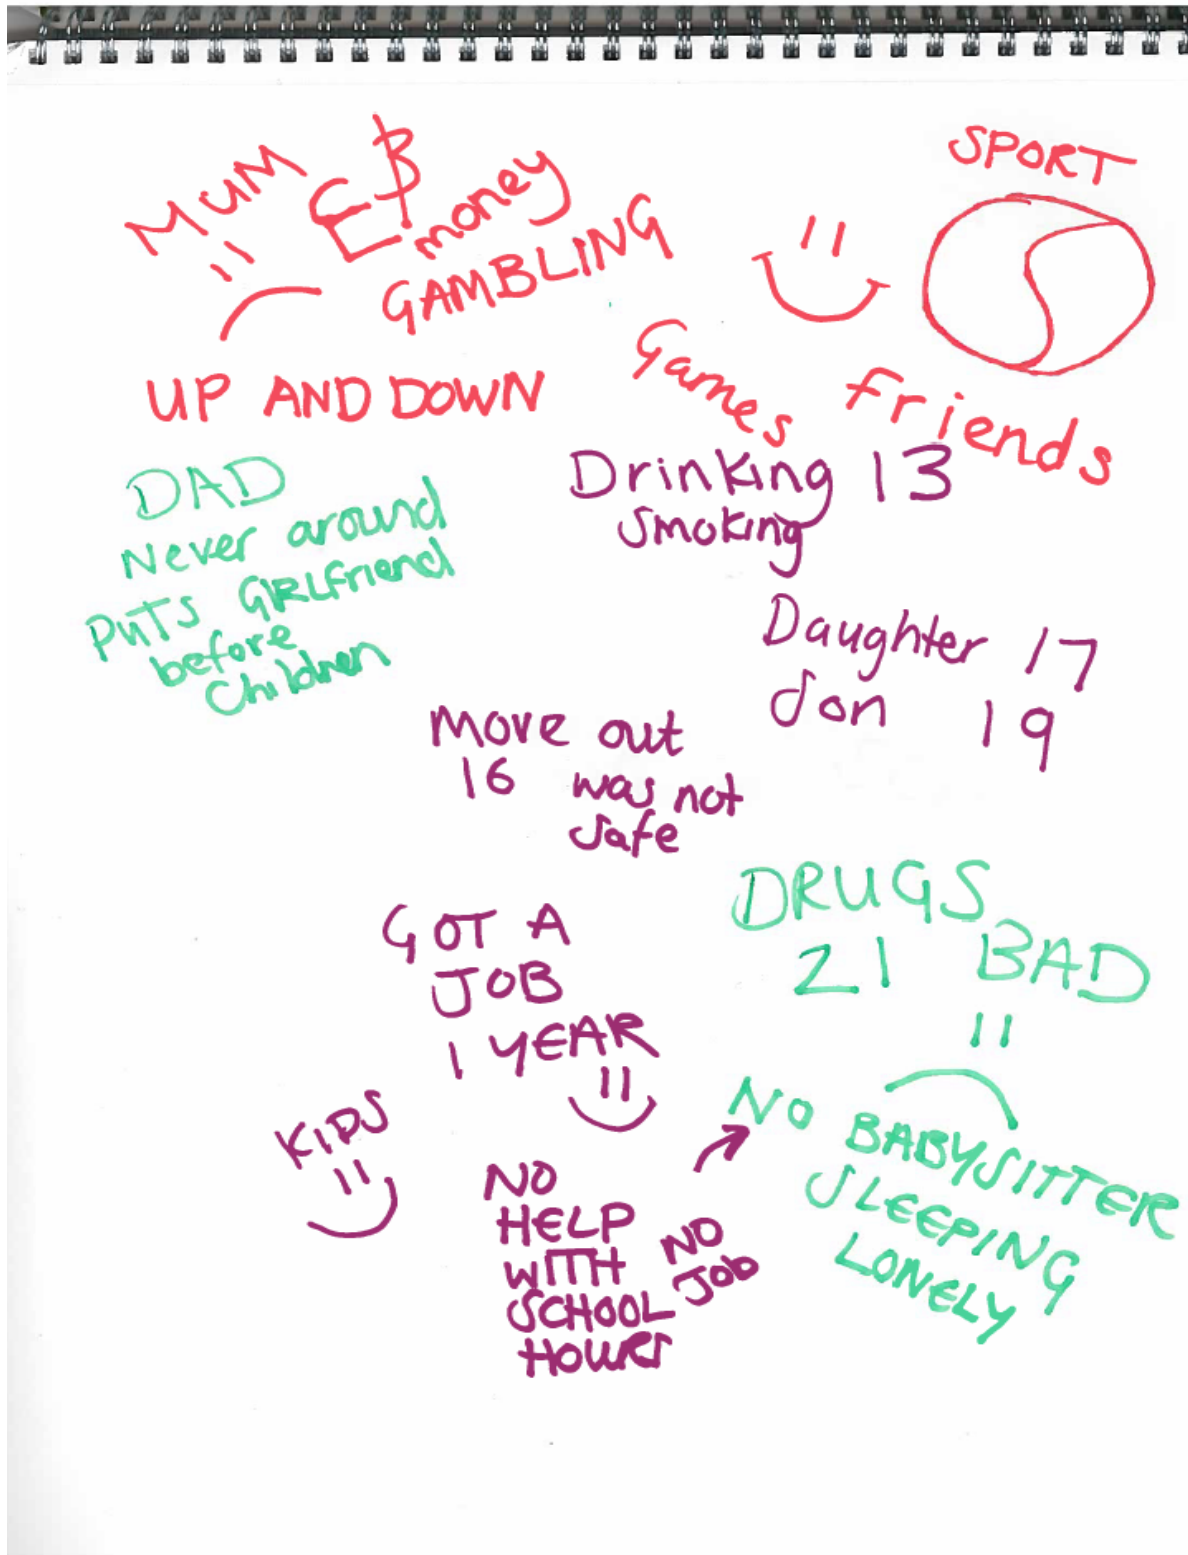 MUM
money
GAMBLING
UP AND DOWN
SPORT
Games
friends
DAD
Never around
PUTS GIRLfriend
before
children
Drinking 13
smoking
Daughter 17
Son 19
Move out
16 was not
safe
GOT A
JOB
1 YEAR
KIDS
NO
HELP
WITH
SCHOOL
HOURS
NO
JOb
DRUGS
21 BAD
NO BABYSITTER
SLEEPING
LONELY